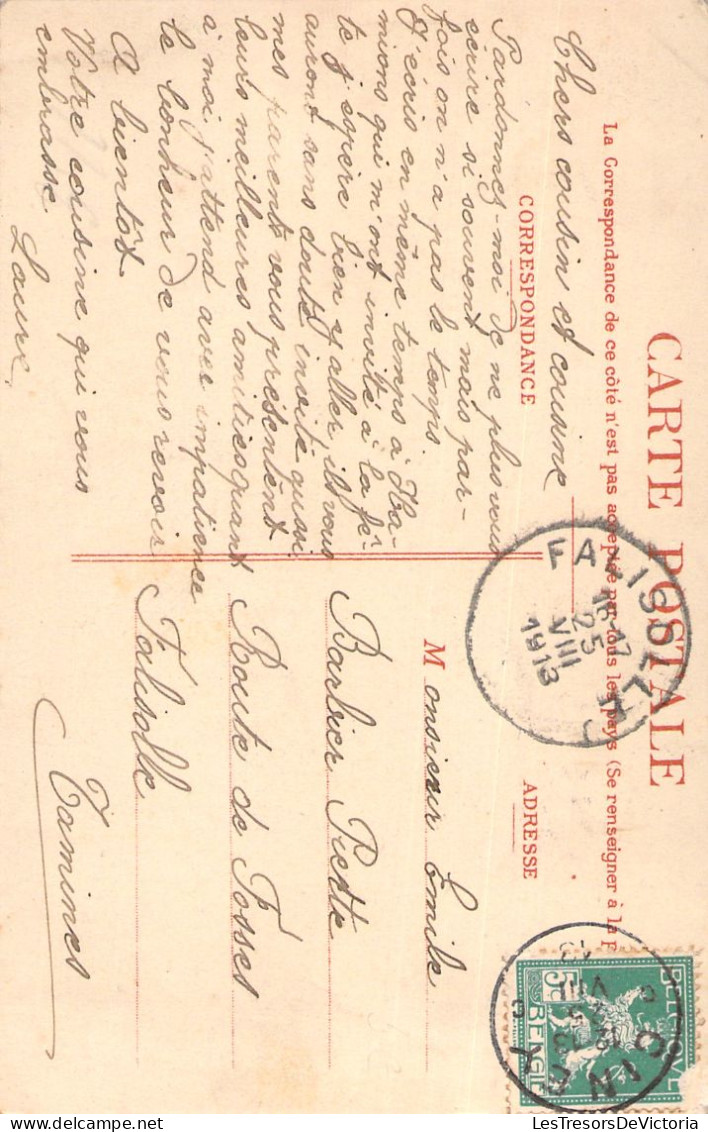 CARTE POSTALE
La Correspondance de ce côté n'est pas acceptée par tous les pays (Se renseigner à la P
CORRESPONDANCE
ADRESSE
Chers cousin et cousine
Pardonnez-moi de ne plus vous
écrire si souvent mais par-
fois on n'a pas le temps.
J'écris en même temps à Ha-
mions qui m'ont invité à la fê-
te j'espère bien y aller, ils vous
auront sans doute invité aussi
mes parents vous présentent
leurs meilleures amitiés quant
à moi j'attend avec impatience
le bonheur de vous revoir
A bientôt
Votre cousine qui vous
embrasse.
Laure
Monsieur Emile
Barbier Piette
Route de Fosses
Falisolle
Tamines
FALISOLLE
16-17
25
VIII
1913
CINEY
12-13
25
VIII
13
BELGIQUE
5c
BELGIE
LesTresorsDeVictoria